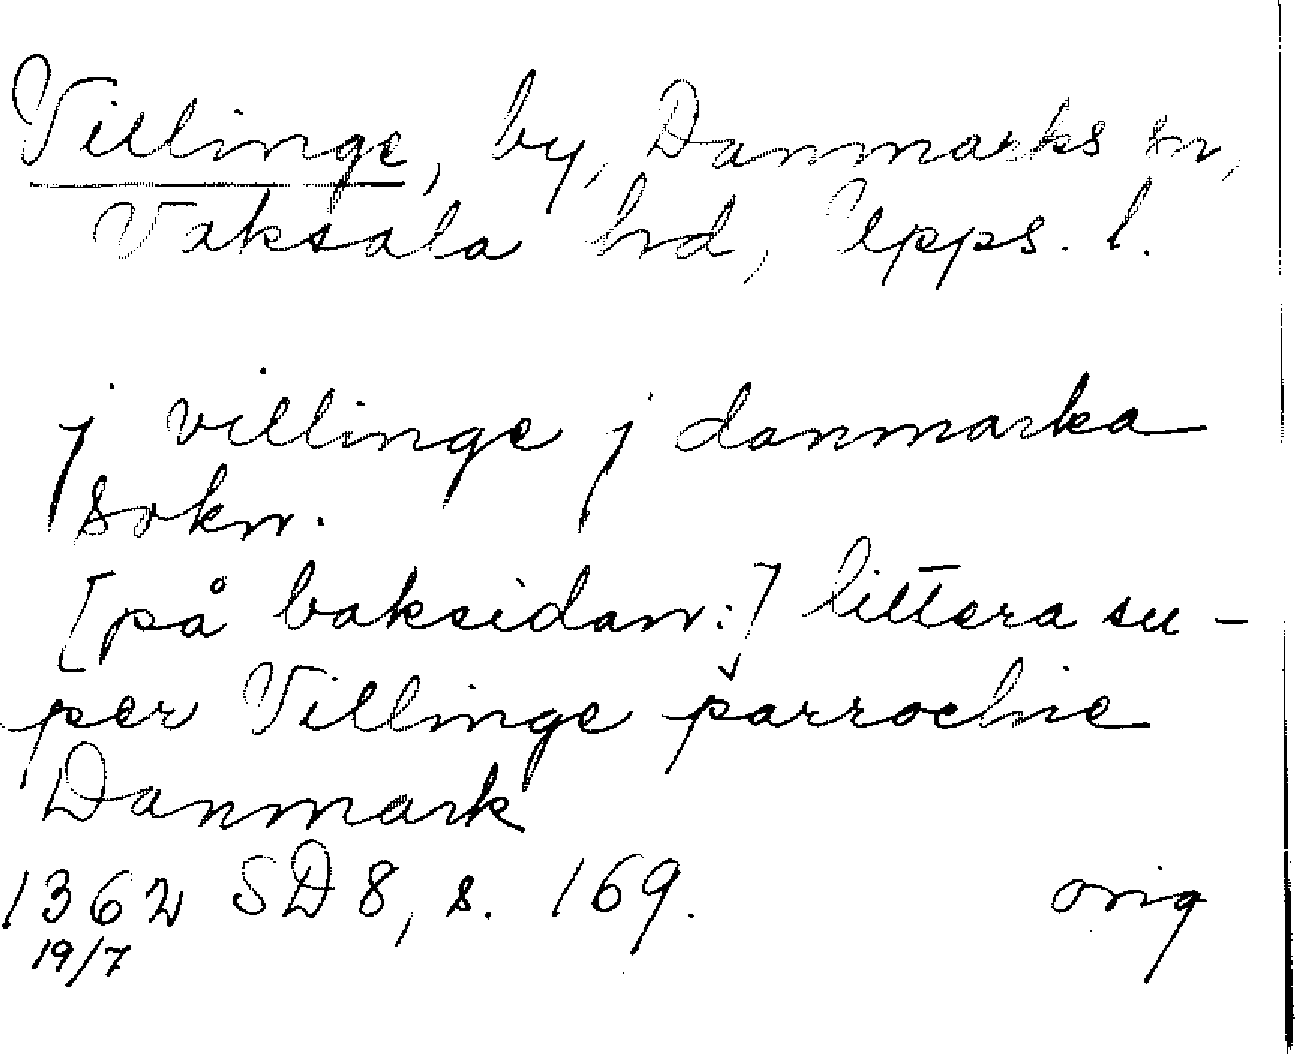 Villinge, by, Danmarks sn,
Vaksala hd, Upps. l.
j villinge j danmarka
sokn.
[på baksidan:] littera su-
per Villinge parrochie
Danmark
1362 SD 8, s. 169. orig
19/7